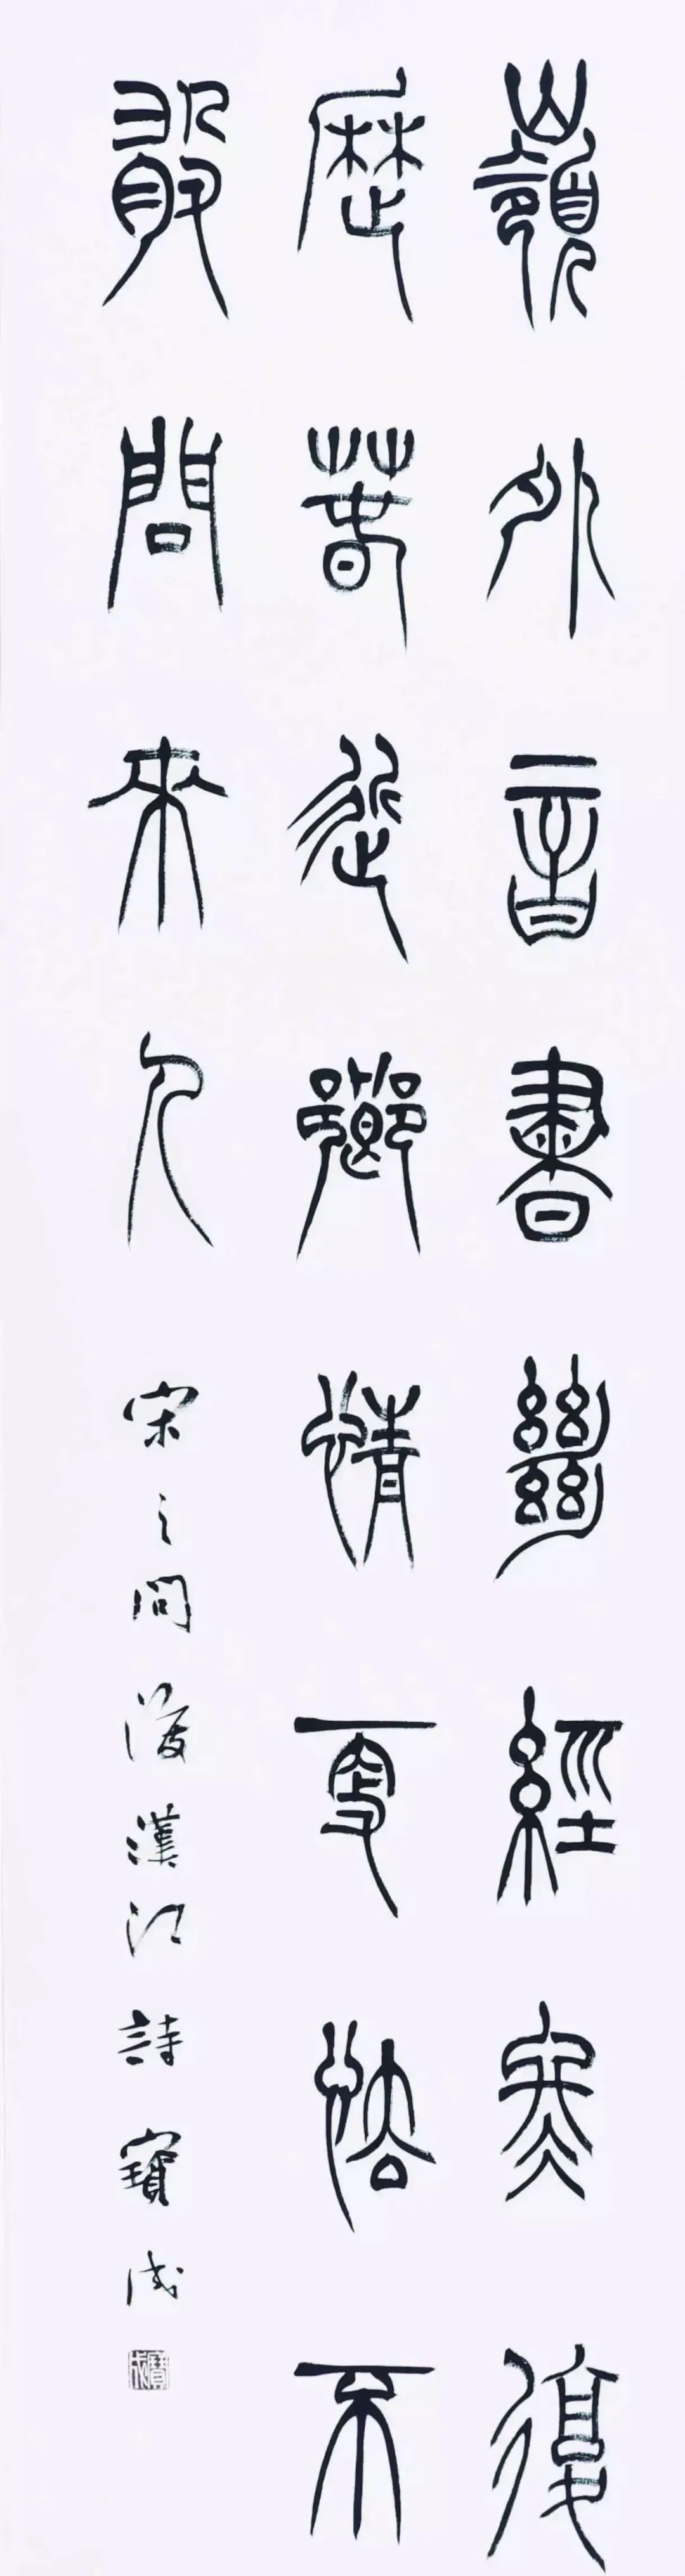 嶺外音書絕經冬復
歷春近鄉情更怯不
敢問來人
宋之問渡漢江詩寶成
寶成